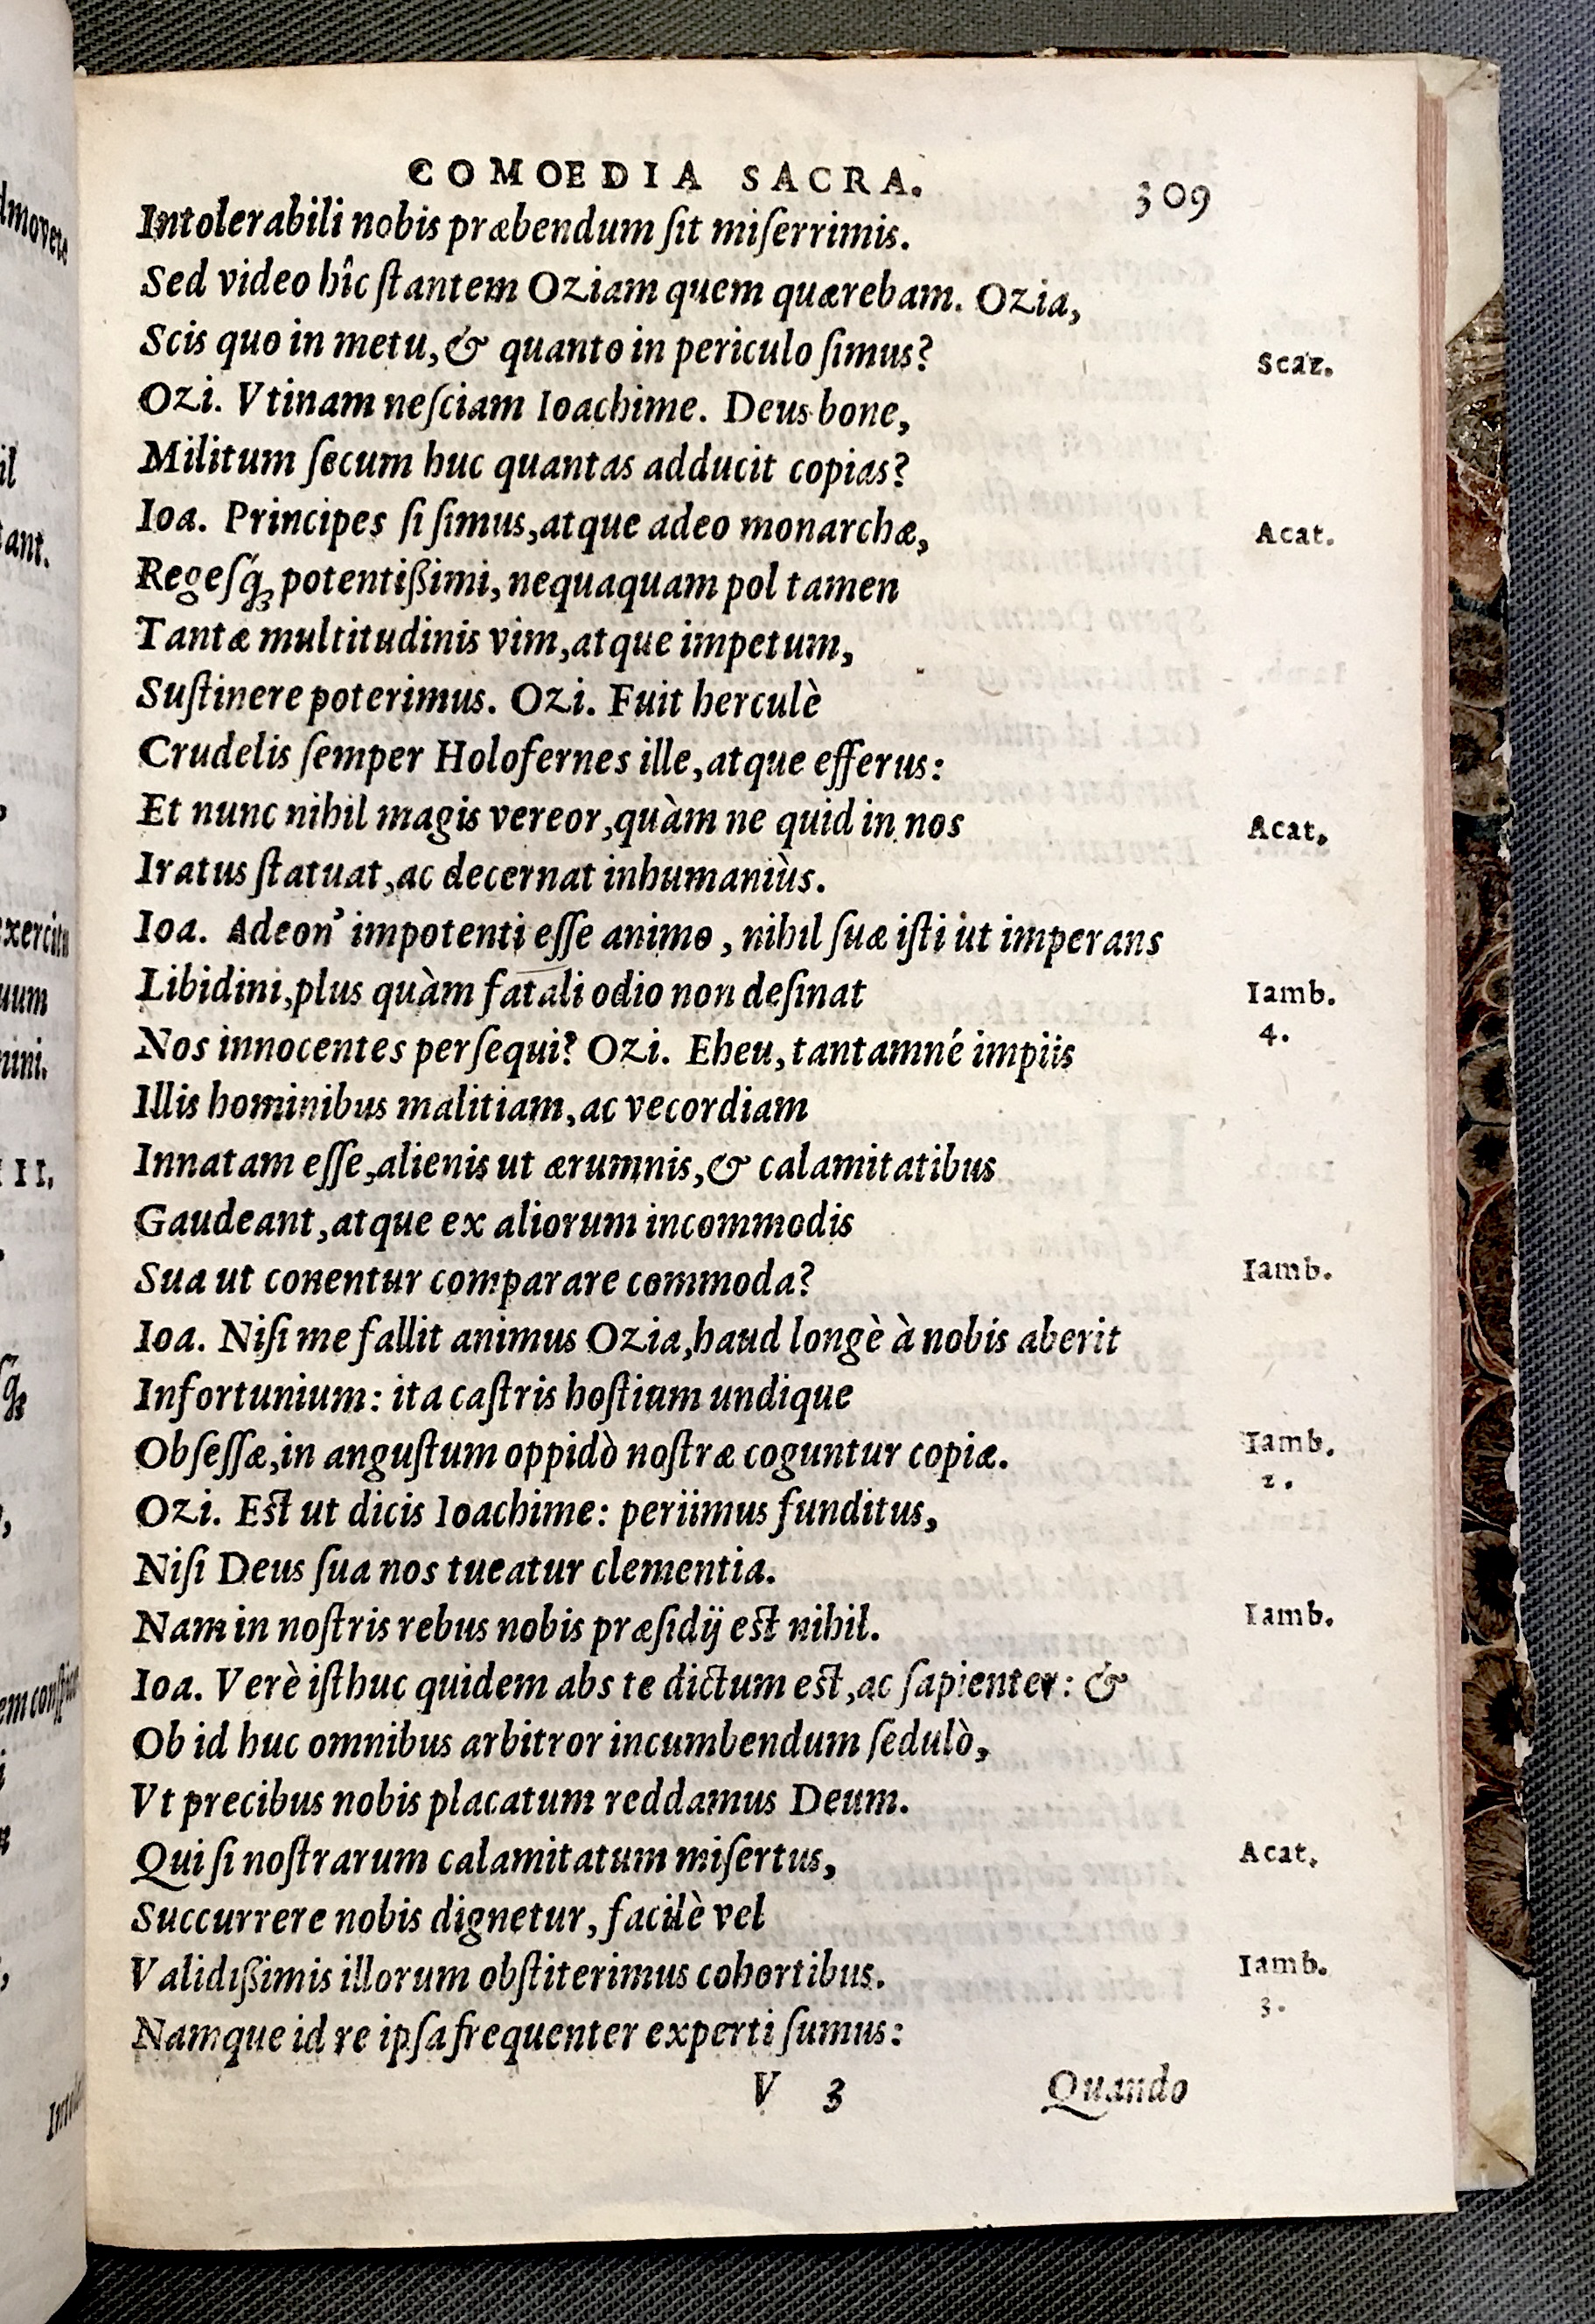 COMOEDIA SACRA. 309
Intolerabili nobis præbendum ſit miſerrimis.
Sed video hîc ſtantem Oziam quem quærebam. Ozia,
Scis quo in metu, & quanto in periculo ſimus? Scaz.
Ozi. Vtinam neſciam Ioachime. Deus bone,
Militum ſecum huc quantas adducit copias?
Ioa. Principes ſi ſimus, atque adeo monarchæ, Acat.
Regeſq́ꝫ potentißimi, nequaquam pol tamen
Tantæ multitudinis vim, atque impetum,
Suſtinere poterimus. Ozi. Fuit herculè
Crudelis ſemper Holofernes ille, atque efferus:
Et nunc nihil magis vereor, quàm ne quid in nos Acat.
Iratus ſtatuat, ac decernat inhumaniùs.
Ioa. Adeon' impotenti eſſe animo, nihil ſuæ iſti ut imperans
Libidini, plus quàm fatali odio non deſinat Iamb.
4.
Nos innocentes perſequi? Ozi. Eheu, tantamné impiis
Illis hominibus malitiam, ac vecordiam
Innatam eſſe, alienis ut ærumnis, & calamitatibus
Gaudeant, atque ex aliorum incommodis
Sua ut conentur comparare commoda? Iamb.
Ioa. Niſi me fallit animus Ozia, haud longè à nobis aberit
Infortunium: ita caſtris hoſtium undique
Obſeſſæ, in anguſtum oppidò noſtræ coguntur copiæ. Iamb.
2.
Ozi. Eſt ut dicis Ioachime: periimus funditus,
Niſi Deus ſua nos tueatur clementia.
Nam in noſtris rebus nobis præſidij eſt nihil. Iamb.
Ioa. Verè iſthuc quidem abs te dictum eſt, ac ſapienter: &
Ob id huc omnibus arbitror incumbendum ſedulò,
Vt precibus nobis placatum reddamus Deum.
Qui ſi noſtrarum calamitatum miſertus, Acat.
Succurrere nobis dignetur, facilè vel
Validißimis illorum obſtiterimus cohortibus. Iamb.
3.
Namque id re ipſa frequenter experti ſumus:
V 3 Quando